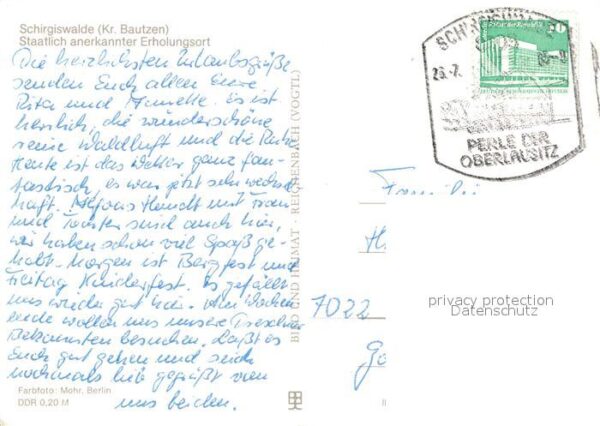 Schirgiswalde (Kr. Bautzen)
Staatlich anerkannter Erholungsort
Die herzlichsten Urlaubsgrüße
senden Euch allen Eure
Rita und Annette. Es ist
herrlich, die wunderschöne
reine Waldluft und die Ruhe.
Heute ist das Wetter ganz fan-
tastisch, es war jetzt sehr wechsel-
haft. Alfons Handt mit Frau
und Tochter sind auch hier,
wir haben schon viel Spaß ge-
habt. Morgen ist Bergfest und
Freitag Kinderfest. Es gefällt
uns wieder gut hier. Am Wochen-
ende wollen uns unsere
Bekannten besuchen. Laßt es
Euch gut gehen und seid
nochmals lieb gegrüßt von
uns beiden.
Farbfoto: Mohr, Berlin
DDR 0,20 M
BILD UND HEIMAT REICHENBACH (VOGTL)
SCHIRGISWALDE
26.7.
PERLE DER
OBERLAUSITZ
Familie
7022
privacy protection
Datenschutz